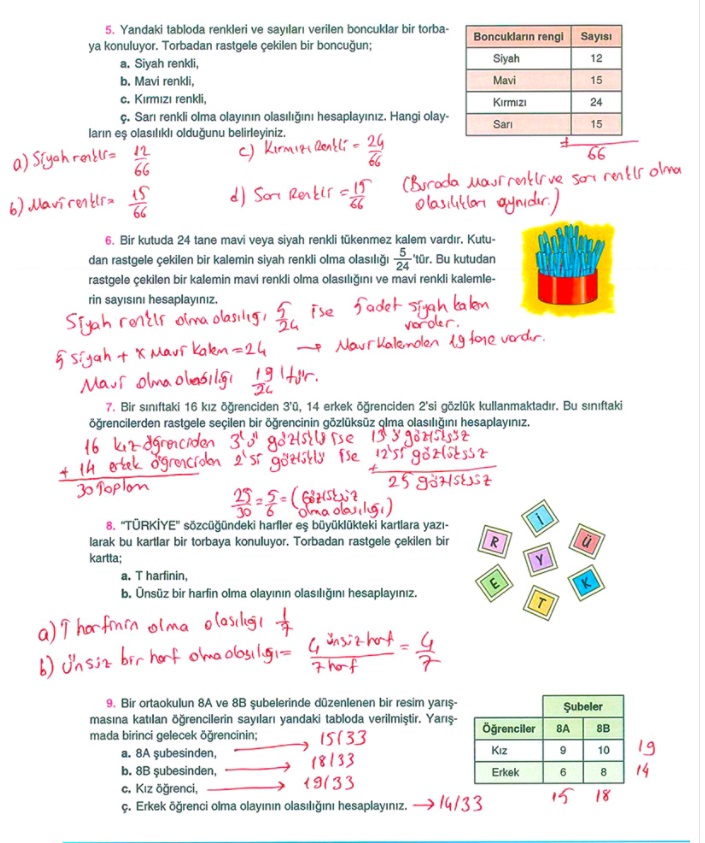 5. Yandaki tabloda renkleri ve sayıları verilen boncuklar bir torba-
ya konuluyor. Torbadan rastgele çekilen bir boncuğun;
a. Siyah renkli,
b. Mavi renkli,
c. Kırmızı renkli,
ç. Sarı renkli olma olayının olasılığını hesaplayınız. Hangi olay-
ların eş olasılıklı olduğunu belirleyiniz.
Boncukların rengi Sayısı
Siyah 12
Mavi 15
Kırmızı 24
Sarı 15
+
66
a) Siyah renkli = 12/66
c) Kırmızı Renkli = 24/66
b) Mavi renkli = 15/66
d) Sarı Renkli = 15/66
(Burada Mavi renkli ve sarı renkli olma
olasılıkları aynıdır.)
6. Bir kutuda 24 tane mavi veya siyah renkli tükenmez kalem vardır. Kutu-
dan rastgele çekilen bir kalemin siyah renkli olma olasılığı 5/24'tür. Bu kutudan
rastgele çekilen bir kalemin mavi renkli olma olasılığını ve mavi renkli kalemle-
rin sayısını hesaplayınız.
Siyah renkli olma olasılığı 5/24 ise 5 adet siyah kalem
vardır.
5 siyah + x Mavi kalem = 24 → Mavi Kalemden 19 tane vardır.
Mavi olma olasılığı 19/24 'tür.
7. Bir sınıftaki 16 kız öğrenciden 3'ü, 14 erkek öğrenciden 2'si gözlük kullanmaktadır. Bu sınıftaki
öğrencilerden rastgele seçilen bir öğrencinin gözlüksüz olma olasılığını hesaplayınız.
16 kız öğrenciden 3'ü gözlüklü ise 13'ü gözlüksüz
+ 14 erkek öğrenciden 2'si gözlüklü ise 12'si gözlüksüz
+
30 Toplam
25 gözlüksüz
25/30 = 5/6 = (Gözlüksüz
olma olasılığı)
8. "TÜRKİYE" sözcüğündeki harfler eş büyüklükteki kartlara yazı-
larak bu kartlar bir torbaya konuluyor. Torbadan rastgele çekilen bir
kartta;
a. T harfinin,
b. Ünsüz bir harfin olma olayının olasılığını hesaplayınız.
İ
R
Ü
Y
E
K
T
a) T harfinin olma olasılığı 1/7
b) Ünsüz bir harf olma olasılığı = 4 ünsüz harf/7 harf = 4/7
9. Bir ortaokulun 8A ve 8B şubelerinde düzenlenen bir resim yarış-
masına katılan öğrencilerin sayıları yandaki tabloda verilmiştir. Yarış-
mada birinci gelecek öğrencinin;
a. 8A şubesinden, → 15/33
b. 8B şubesinden, → 18/33
c. Kız öğrenci, → 19/33
ç. Erkek öğrenci olma olayının olasılığını hesaplayınız. → 14/33
Şubeler
Öğrenciler 8A 8B
Kız 9 10 19
Erkek 6 8 14
15 18